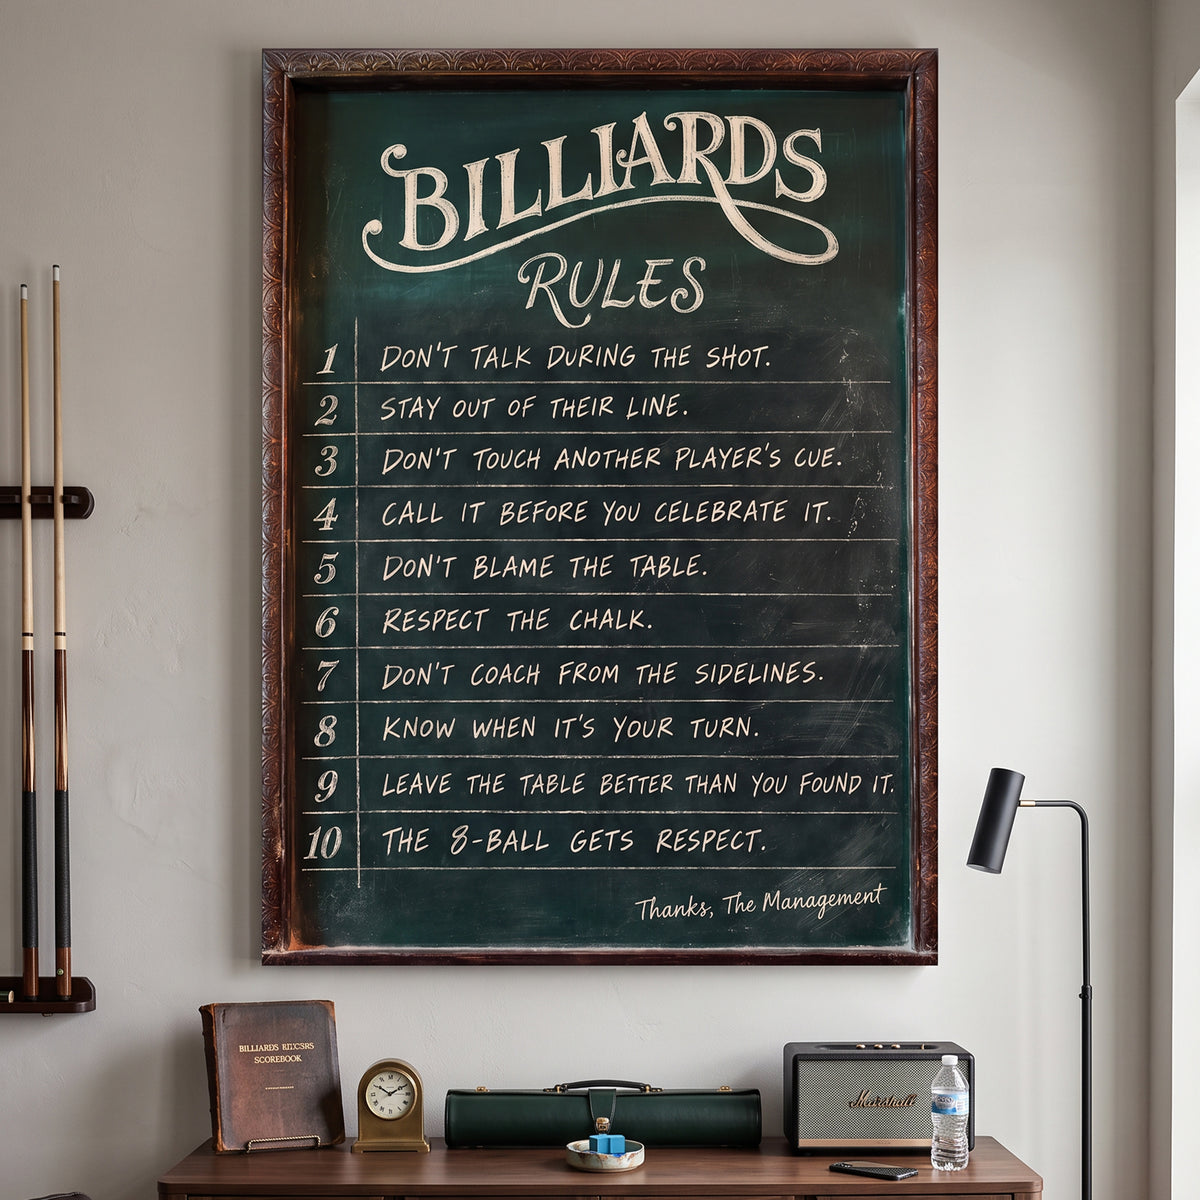 BILLIARDS
RULES
1 DON'T TALK DURING THE SHOT.
2 STAY OUT OF THEIR LINE.
3 DON'T TOUCH ANOTHER PLAYER'S CUE.
4 CALL IT BEFORE YOU CELEBRATE IT.
5 DON'T BLAME THE TABLE.
6 RESPECT THE CHALK.
7 DON'T COACH FROM THE SIDELINES.
8 KNOW WHEN IT'S YOUR TURN.
9 LEAVE THE TABLE BETTER THAN YOU FOUND IT.
10 THE 8-BALL GETS RESPECT.
Thanks, The Management
BILLIARDS
SCOREBOOK
Marshall